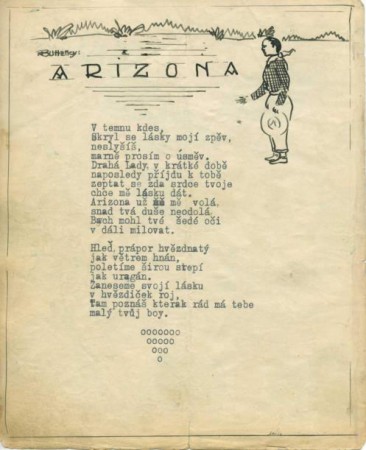 ARIZONA
V temnu kdes,
skryl se lásky mojí zpěv,
neslyšíš,
marně prosím o úsměv.
Drahá Lady, v krátké době
naposledy přijdu k tobě
zeptat se zda srdce tvoje
chce mě lásku dát.
Arizona už mě volá
snad tvá duše neodolá
Bych mohl tvé šedé oči
v dáli milovat.
Hleď, prápor hvězdnatý
jak větrem hnán,
poletíme šírou stepí
jak uragán.
Zaneseme svojí lásku
v hvězdiček roj,
Tam poznáš kterak rád má tebe
malý tvůj boy.
ooooooo
ooooo
ooo
o